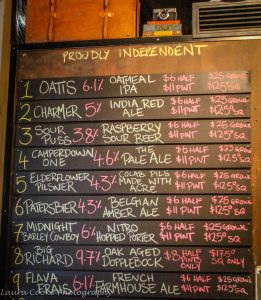 PROUDLY INDEPENDENT
1 OATIS 6.1% OATMEAL IPA $6 HALF $11 PINT $25 GROWL
2 CHARMER 5% INDIA RED ALE $6 HALF $11 PINT $25 GROWL
3 SOUR PUSS 3.8% RASPBERRY SOUR BEER $6 HALF $11 PINT $25 GROWL
4 CAMPERDOWN ONE 4.6% THE PALE ALE $6 HALF $11 PINT $25 GROWL
5 ELDERFLOWER PILSNER 4.3% COLAB PILS MADE WITH ACRE $6 HALF $11 PINT $25 GROWL
6 PATERSBIER 4.3% BELGIAN AMBER ALE $6 HALF $11 PINT $25 GROWL
7 MIDNIGHT BARLEY COWBOY 6% NITRO HOPPED PORTER $6 HALF $11 PINT $25 GROWL
8 BIG RICHARD 9.7% OAK AGED DOPPLEBOCK $8 PINTS ONLY ONLY
9 FLAVA FRAIS 6.1% FRENCH FARMHOUSE ALE $6 HALF $11 PINT $25 GROWL
Laura Cooke Photography